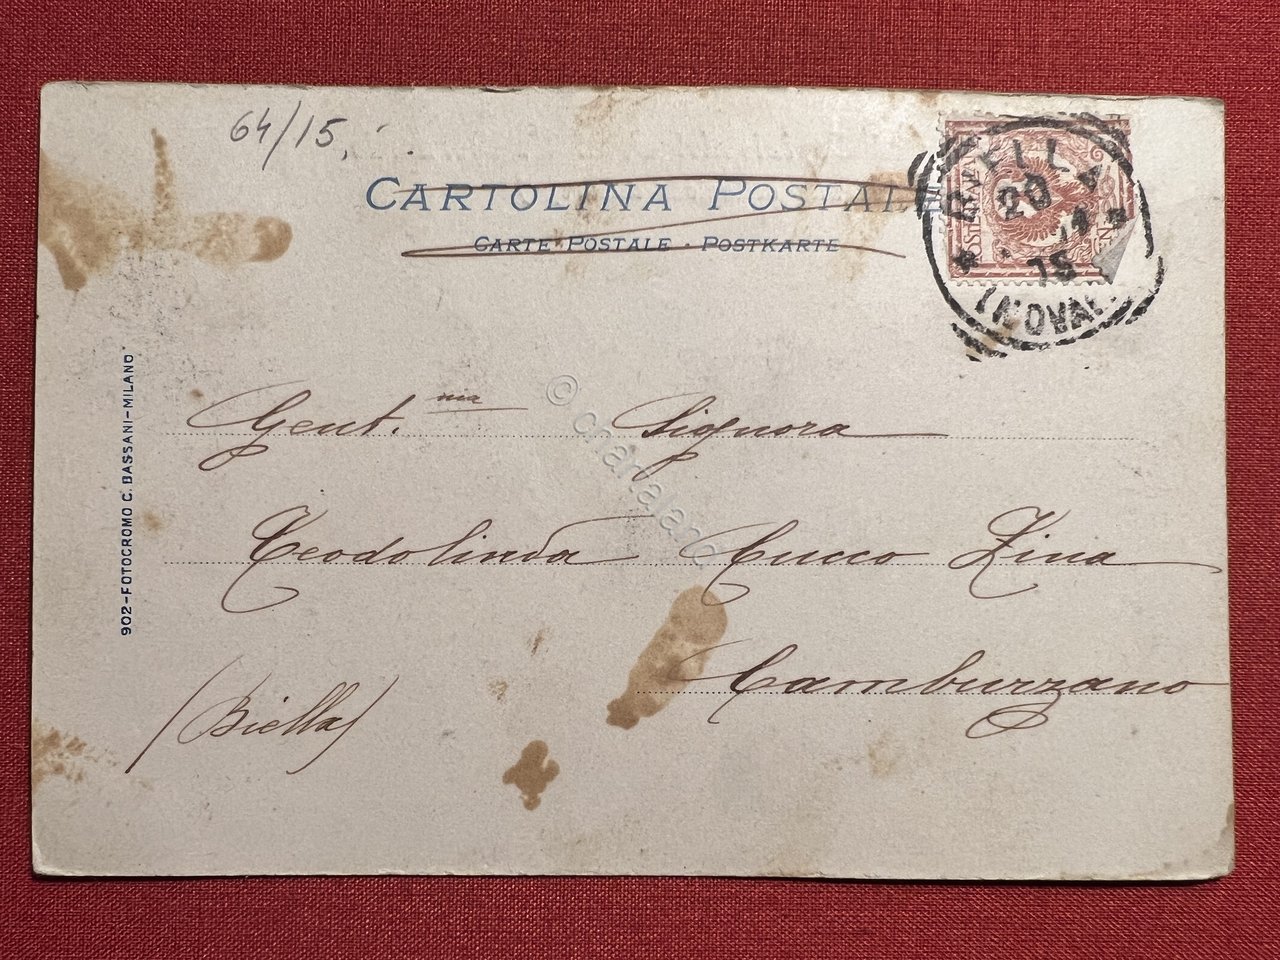 64/15,
CARTOLINA POSTALE
CARTE POSTALE - POSTKARTE
POSTE ITALIANE
BIELLA
20
15
(NOVARA
902-FOTOCROMO C. BASSANI-MILANO
© chartaland
Gent.ma Signora
Teodolinda Cucco Zina
Camburzano
(Biella)